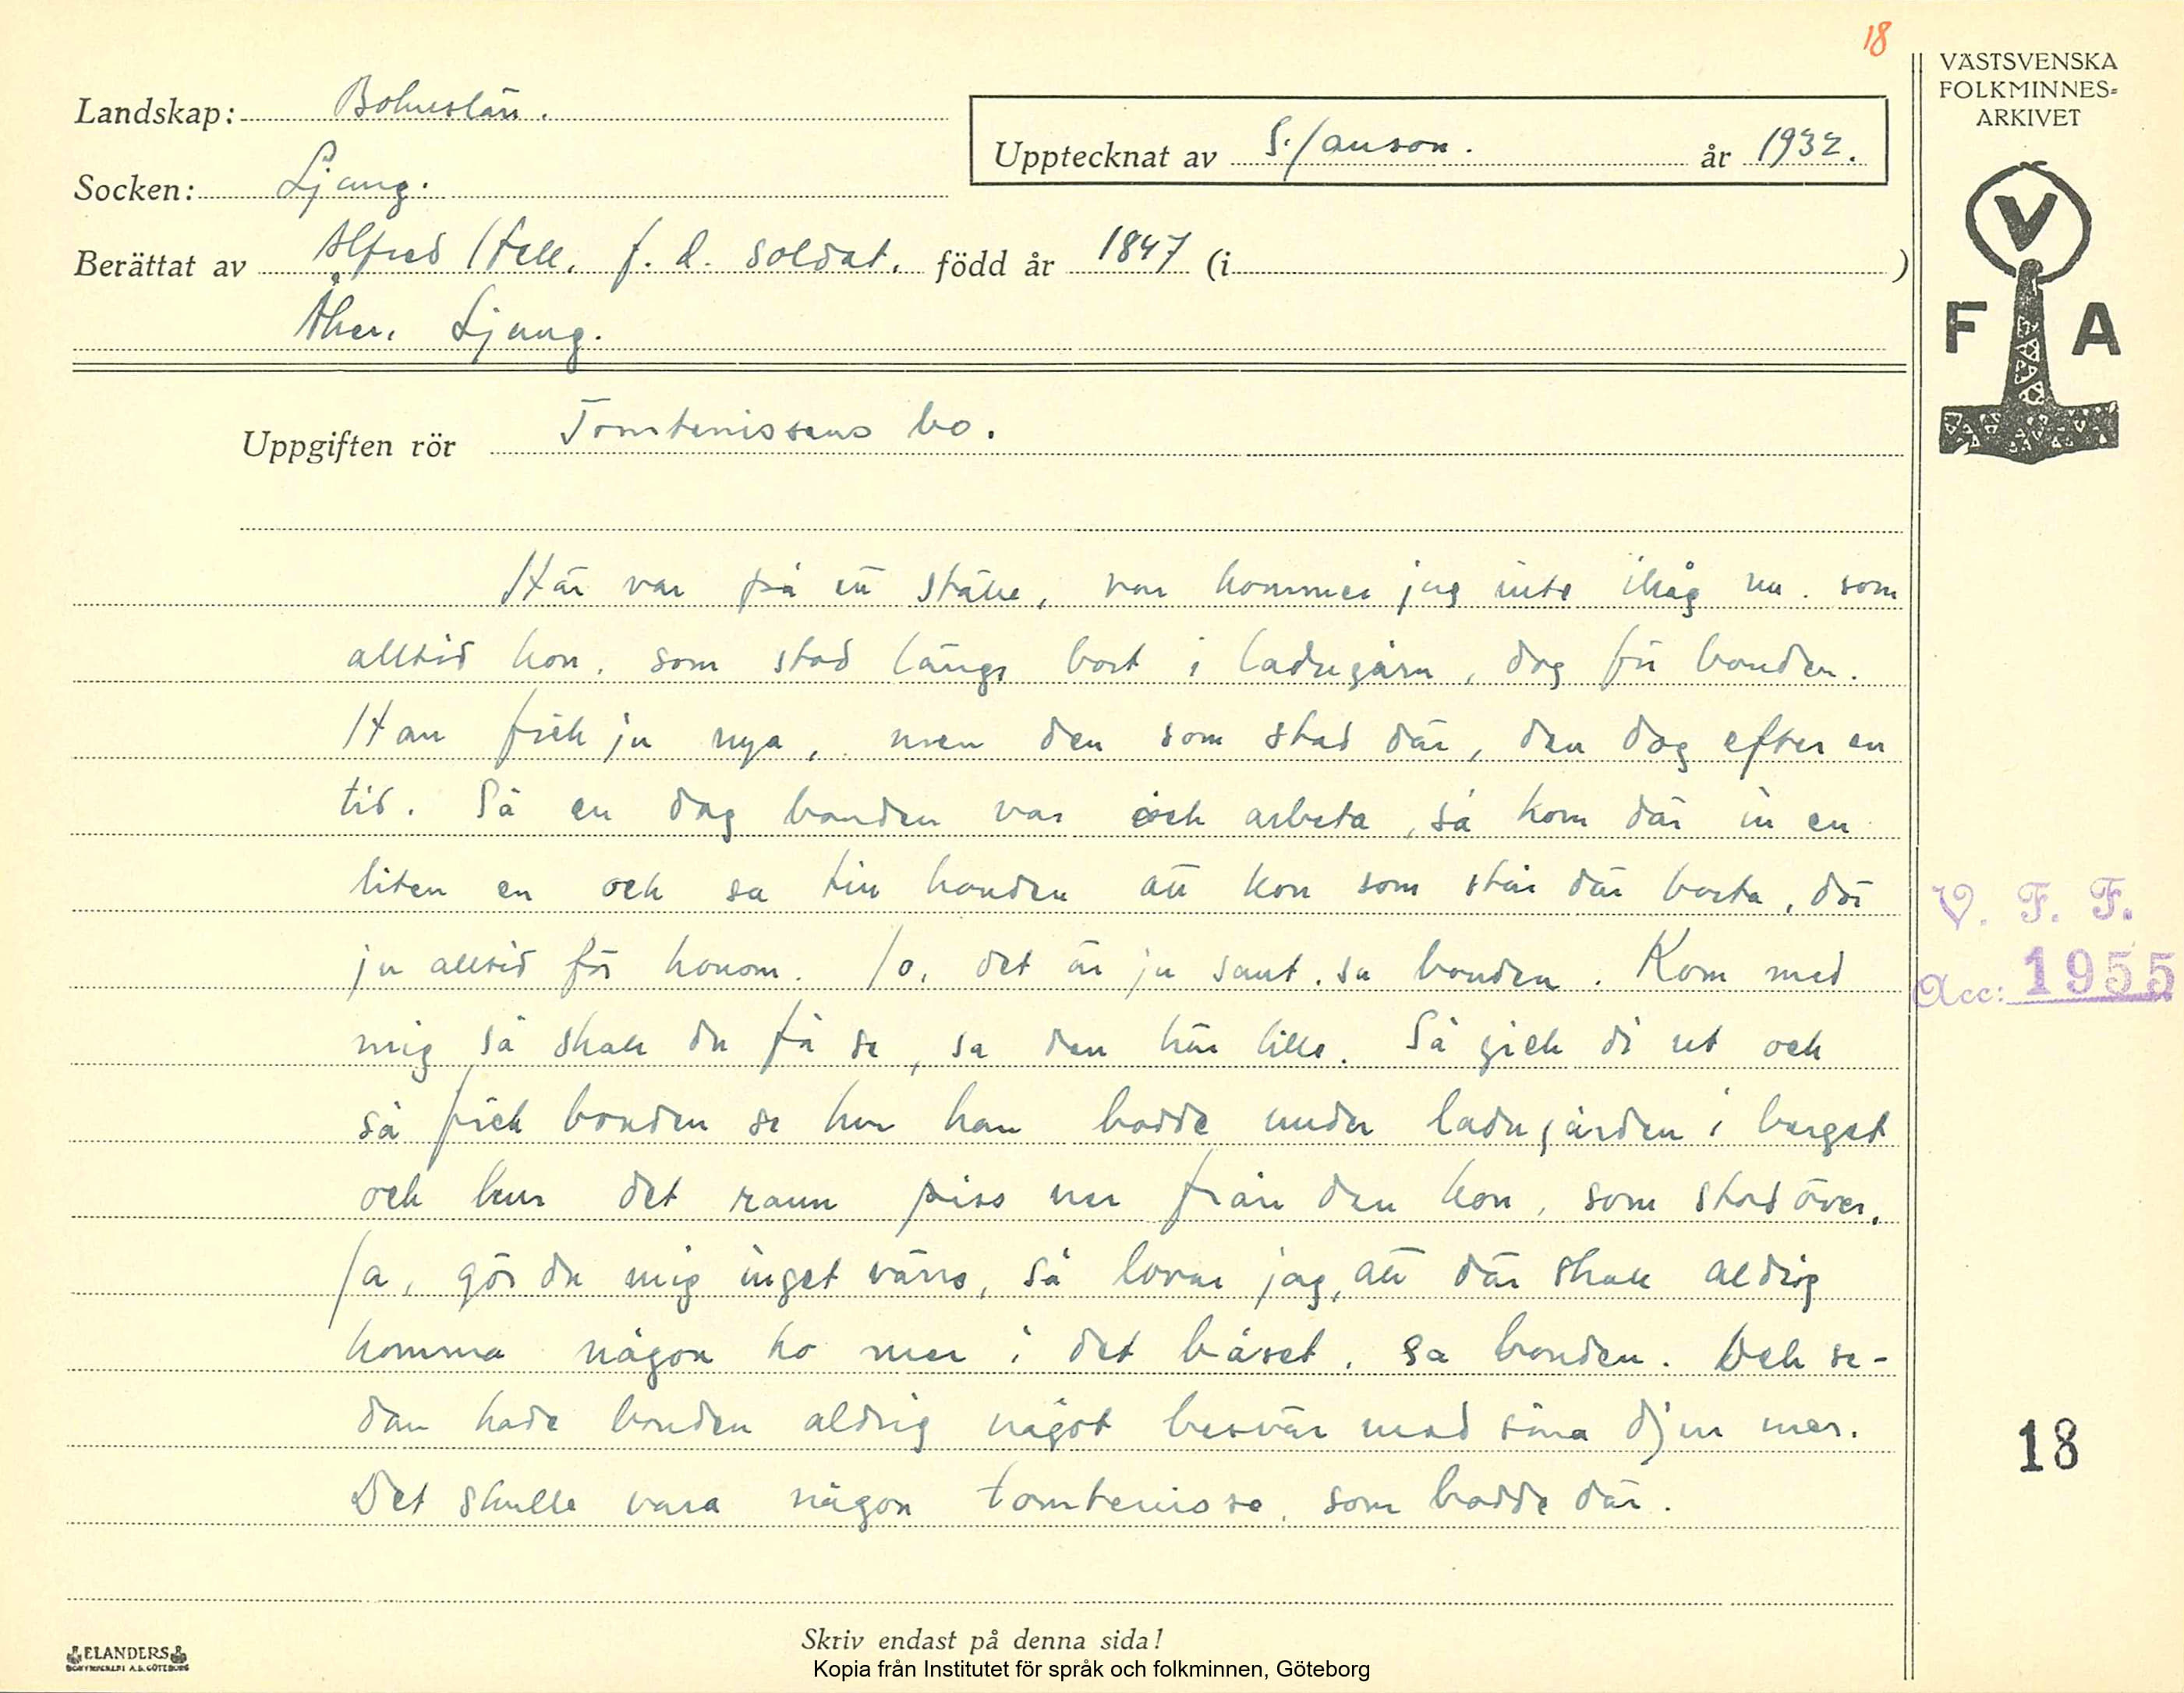 18
VÄSTSVENSKA
FOLKMINNES-
ARKIVET
Landskap: Bohuslän.
Upptecknat av S. Janson. år 1932.
Socken: Ljung.
Berättat av Alfred Häll. f. d. soldat. född år 1847 (i )
Åker. Ljung.
V
F A
Uppgiften rör Tomtenissens bo.
Här var på ett ställe, var kommer jag inte ihåg nu. som
alltid kon. som stod längs bort i ladugårn, dog för bonden.
Han fick ju nya, men den som stod där, den dog efter en
tid. Så en dag bonden var och arbeta, så kom där in en
liten en och sa till bonden att kon som står där borta, dör
ju alltid för honom. Jo, det är ju sant. sa bonden. Kom med
mig så skall du få se, sa den här lille. Så gick di ut och
så fick bonden se hur han bodde under ladugården i berget
och hur det rann piss ner från den kon, som stod över.
Ja, gör du mig inget värre, så lovar jag, att där skall aldrig
komma någon ko mer i det båset, sa bonden. Och se-
dan hade bonden aldrig något besvär med sina djur mer.
Det skulle vara någon tomtenisse, som bodde där.
V. F. F.
Acc: 1955
18
Skriv endast på denna sida!
ELANDERS
BOKTRYCKERI A.B. GÖTEBORG
Kopia från Institutet för språk och folkminnen, Göteborg